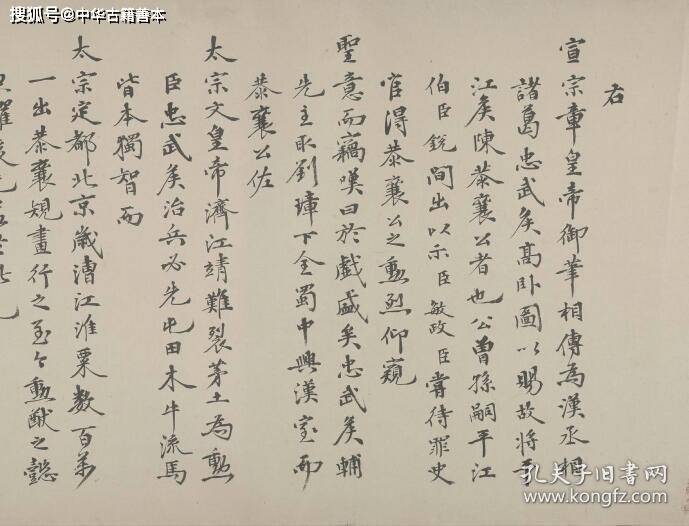 搜狐号@中华古籍善本
右
宣宗章皇帝御筆相傳為漢丞相
諸葛忠武矦高卧圖以賜故將平
江矦陳恭襄公者也公曾孫嗣平江
伯臣銳間出以示臣敏政臣嘗待罪史
官得恭襄公之勲烈仰窺
聖意而竊嘆曰於戲盛矣忠武矦輔
先主取劉璋下全蜀中興漢室而
恭襄公佐
太宗文皇帝濟江靖難裂茅土為勲
臣忠武矦治兵必先屯田木牛流馬
皆本獨智而
太宗定都北京歲漕江淮粟數百萬
一出恭襄規畫行之至今勲猷之懿
孔夫子旧书网
www.kongfz.com